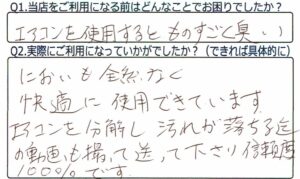 Q1.当店をご利用になる前はどんなことでお困りでしたか？
エアコンを使用すると ものすごく臭い
Q2.実際にご利用になっていかがでしたか？（できれば具体的に）
においも全然なく
快適に使用できています
エアコンを分解し 汚れが落ちる迄
の動画も撮って送って下さり信頼度
100%です